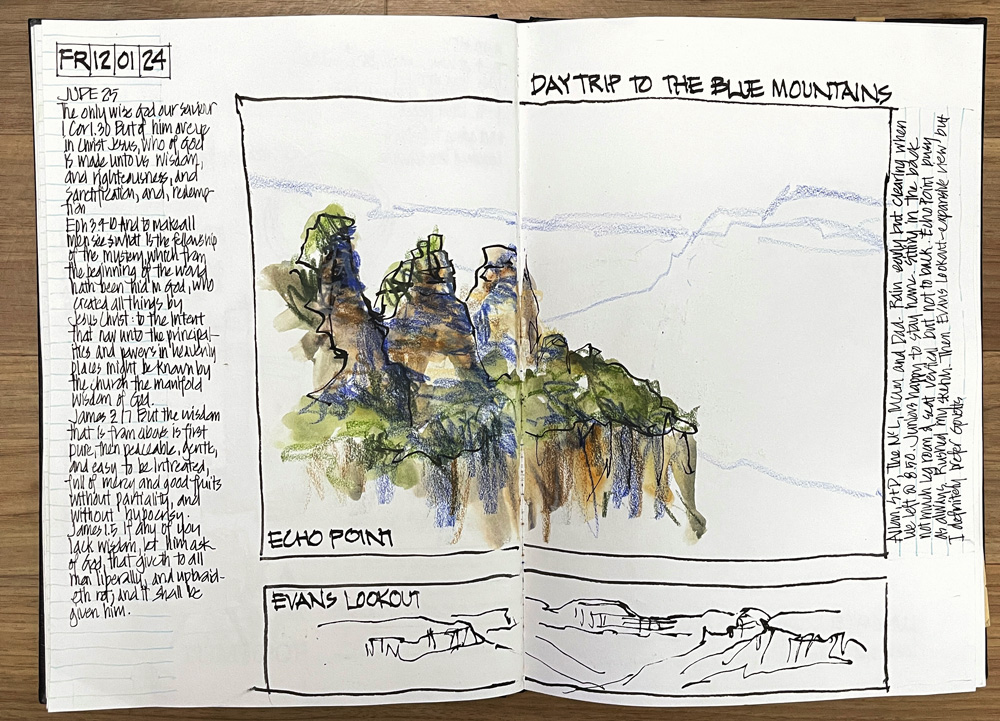 FR 12 01 24
JUDE 25
The only wise God our saviour
1 Cor 1.30 But of him are ye
in Christ Jesus, who of God
is made unto us wisdom,
and righteousness, and
sanctification, and, redemp-
tion
Eph 3 9-10 And to make all
men see what is the fellowship
of the mystery, which from
the beginning of the world
hath been hid in God, who
created all things by
Jesus Christ: to the intent
that now unto the principal-
ities and powers in heavenly
places might be known by
the church the manifold
wisdom of God.
James 3 17 But the wisdom
that is from above is first
pure, then peaceable, gentle,
and easy to be intreated,
full of mercy and good fruits
without partiality, and
without hypocrisy.
James 1.5 If any of you
lack wisdom, let him ask
of God, that giveth to all
men liberally, and upbraid-
eth not; and it shall be
given him.
DAY TRIP TO THE BLUE MOUNTAINS
ECHO POINT
EVANS LOOKOUT
Mum and Dad. Rain early but clearing when
we left @ 8.50. Juniors happy to stay home. Sitting in the back
not much leg room & seat vertical but not too back. Echo Point busy
as always. Rushed my sketch. Then Evans Lookout - expansive view but
I definitely prefer